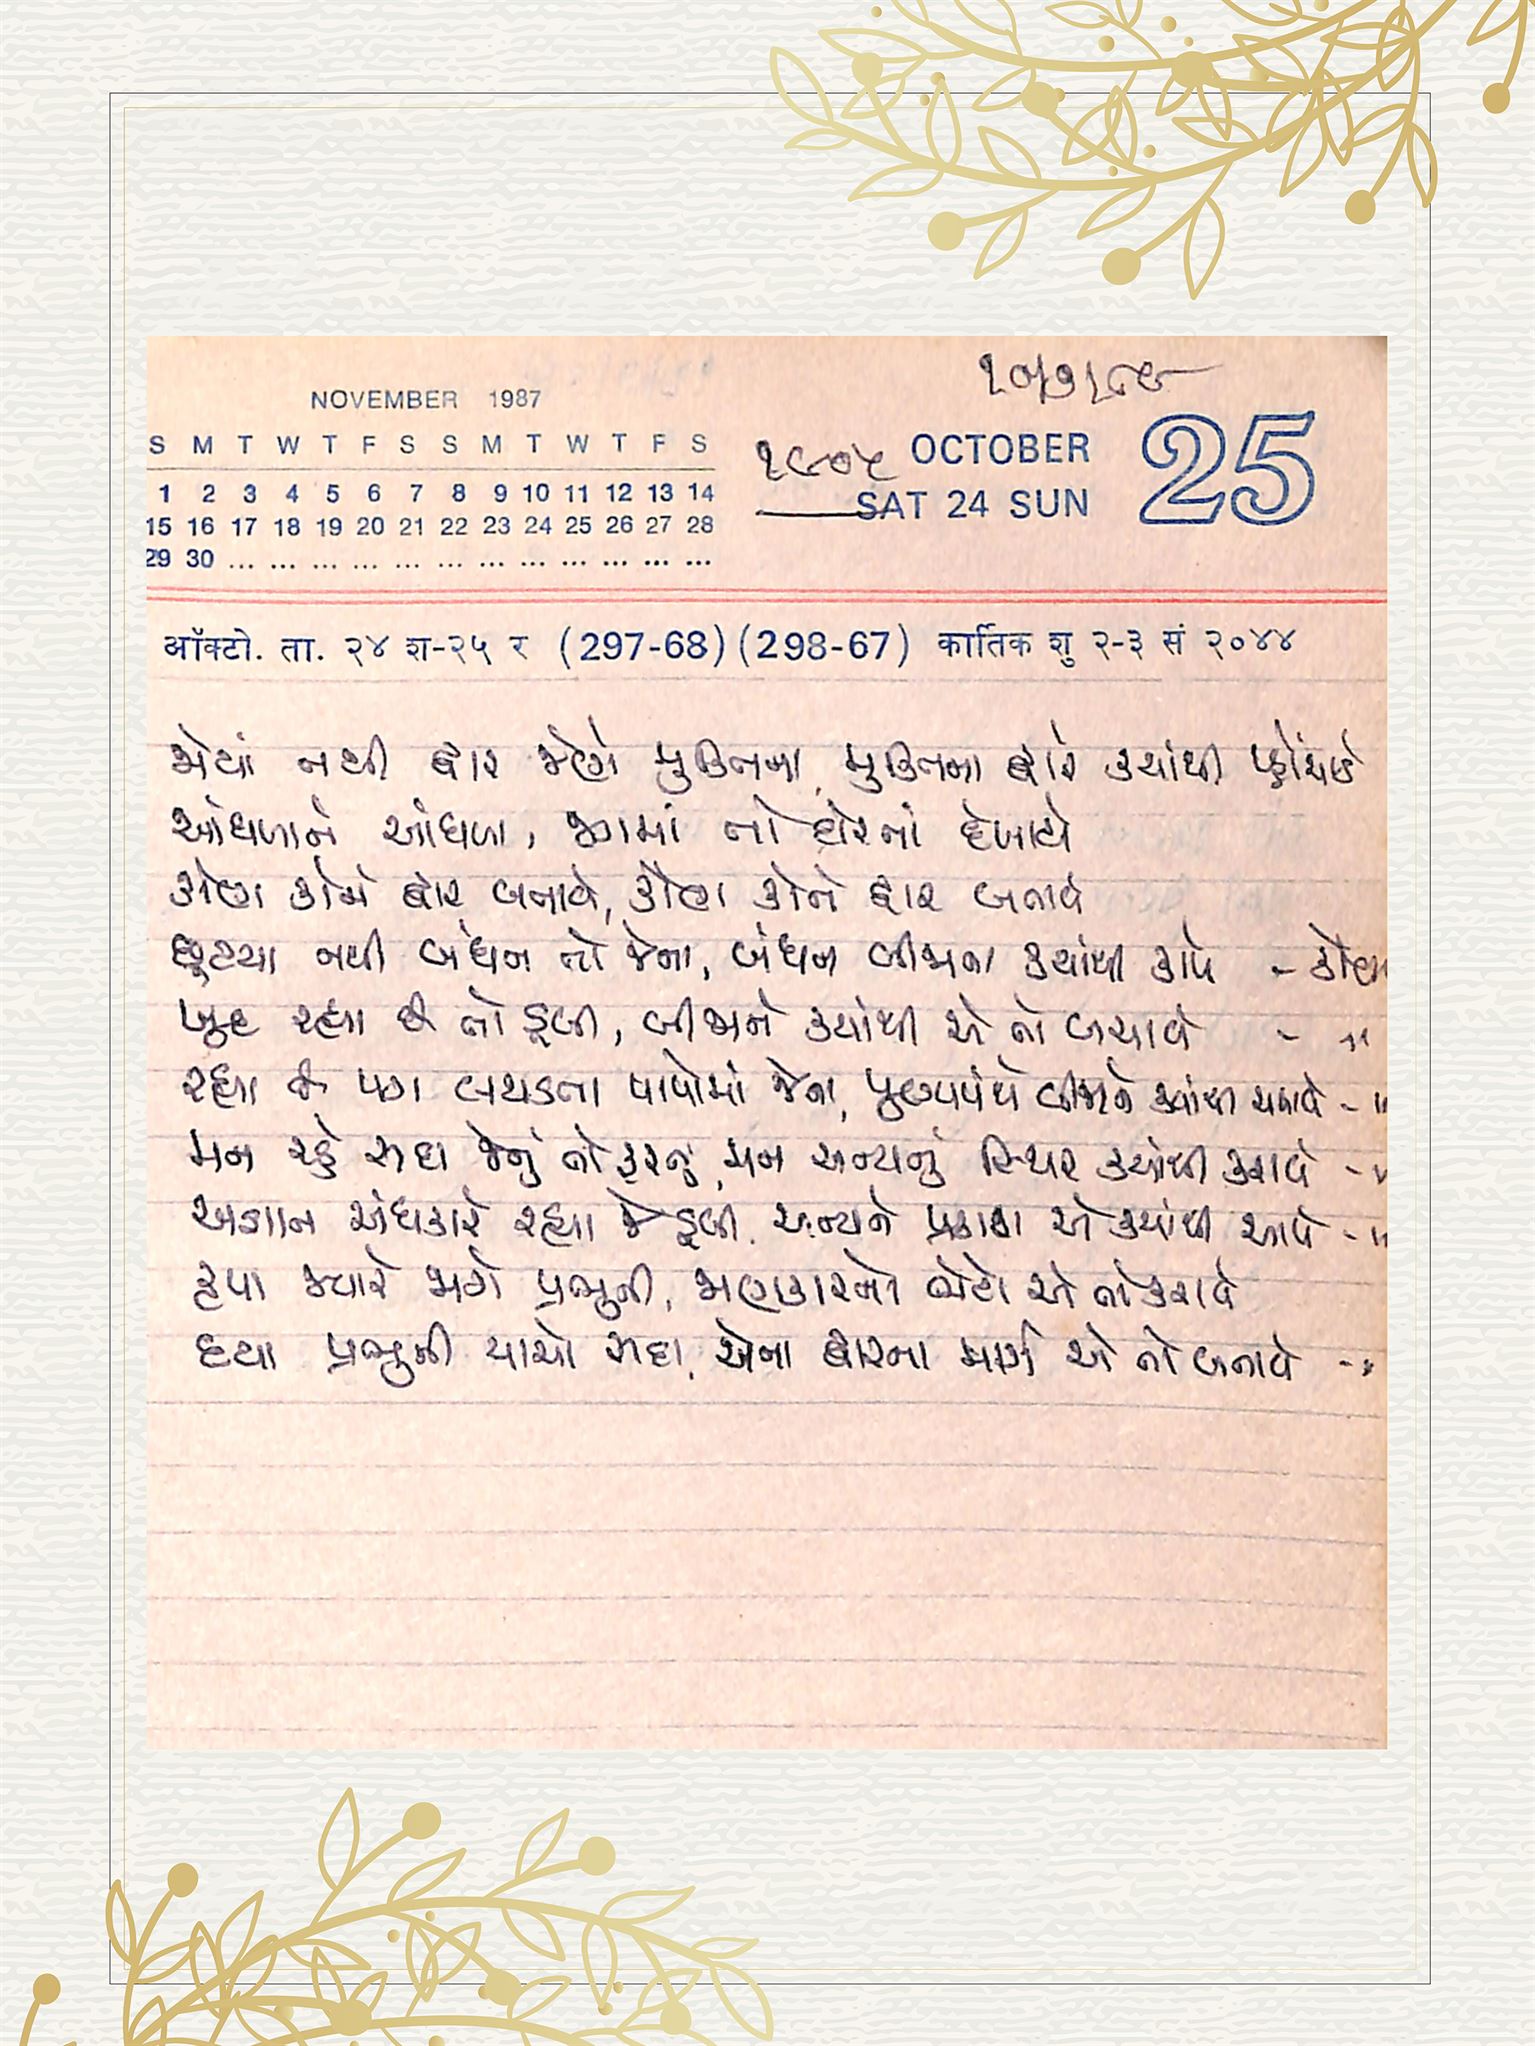 ૧૦/૭/૮૯
NOVEMBER 1987
S M T W T F S S M T W T F S
1 2 3 4 5 6 7 8 9 10 11 12 13 14
15 16 17 18 19 20 21 22 23 24 25 26 27 28
29 30 ... ... ... ... ... ... ... ... ... ... ... ...
૧૯૦૫ OCTOBER 25
SAT 24 SUN
ऑक्टो. ता. २४ श-२५ र (297-68) (298-67) कार्तिक शु २-३ सं २०४४
જોયાં નથી દ્વાર જેણે મુક્તિના, મુક્તિના દ્વારે ક્યાંથી પ્હોંચાડે
આંધળાને આંધળા, જગમાં તો દોરતાં દેખાયે
કોણ કોને દ્વાર બતાવે, કોણ કોને દ્વાર બતાવે
છૂટયા નથી બંધન તો જેના, બંધન બીજાના ક્યાંથી કાપે - કોણ
ખુદ રહ્યા છે તો ડૂબી, બીજાને ક્યાંથી એ તો બચાવે - "
રહ્યા છે પગ લથડતા પાપોમાં જેના, પુણ્યપંથે બીજાને ક્યાંથી ચલાવે - "
મન રહે સદા જેનું તો ફરતું, મન અન્યનું સ્થિર ક્યાંથી કરાવે - "
અજ્ઞાન અંધકારે રહ્યા જે ડૂબી, અન્યને પ્રકાશ એ ક્યાંથી આપે - "
કૃપા જ્યારે જાગે પ્રભુની, જાણકારનો ભેટો એ તો કરાવે
દયા પ્રભુની યાચો સદા, એના દ્વારના માર્ગ એ તો બતાવે - "